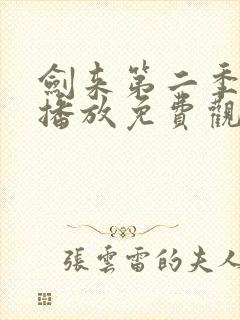 劍来第二季
播放免費觀
張雲雷的夫人